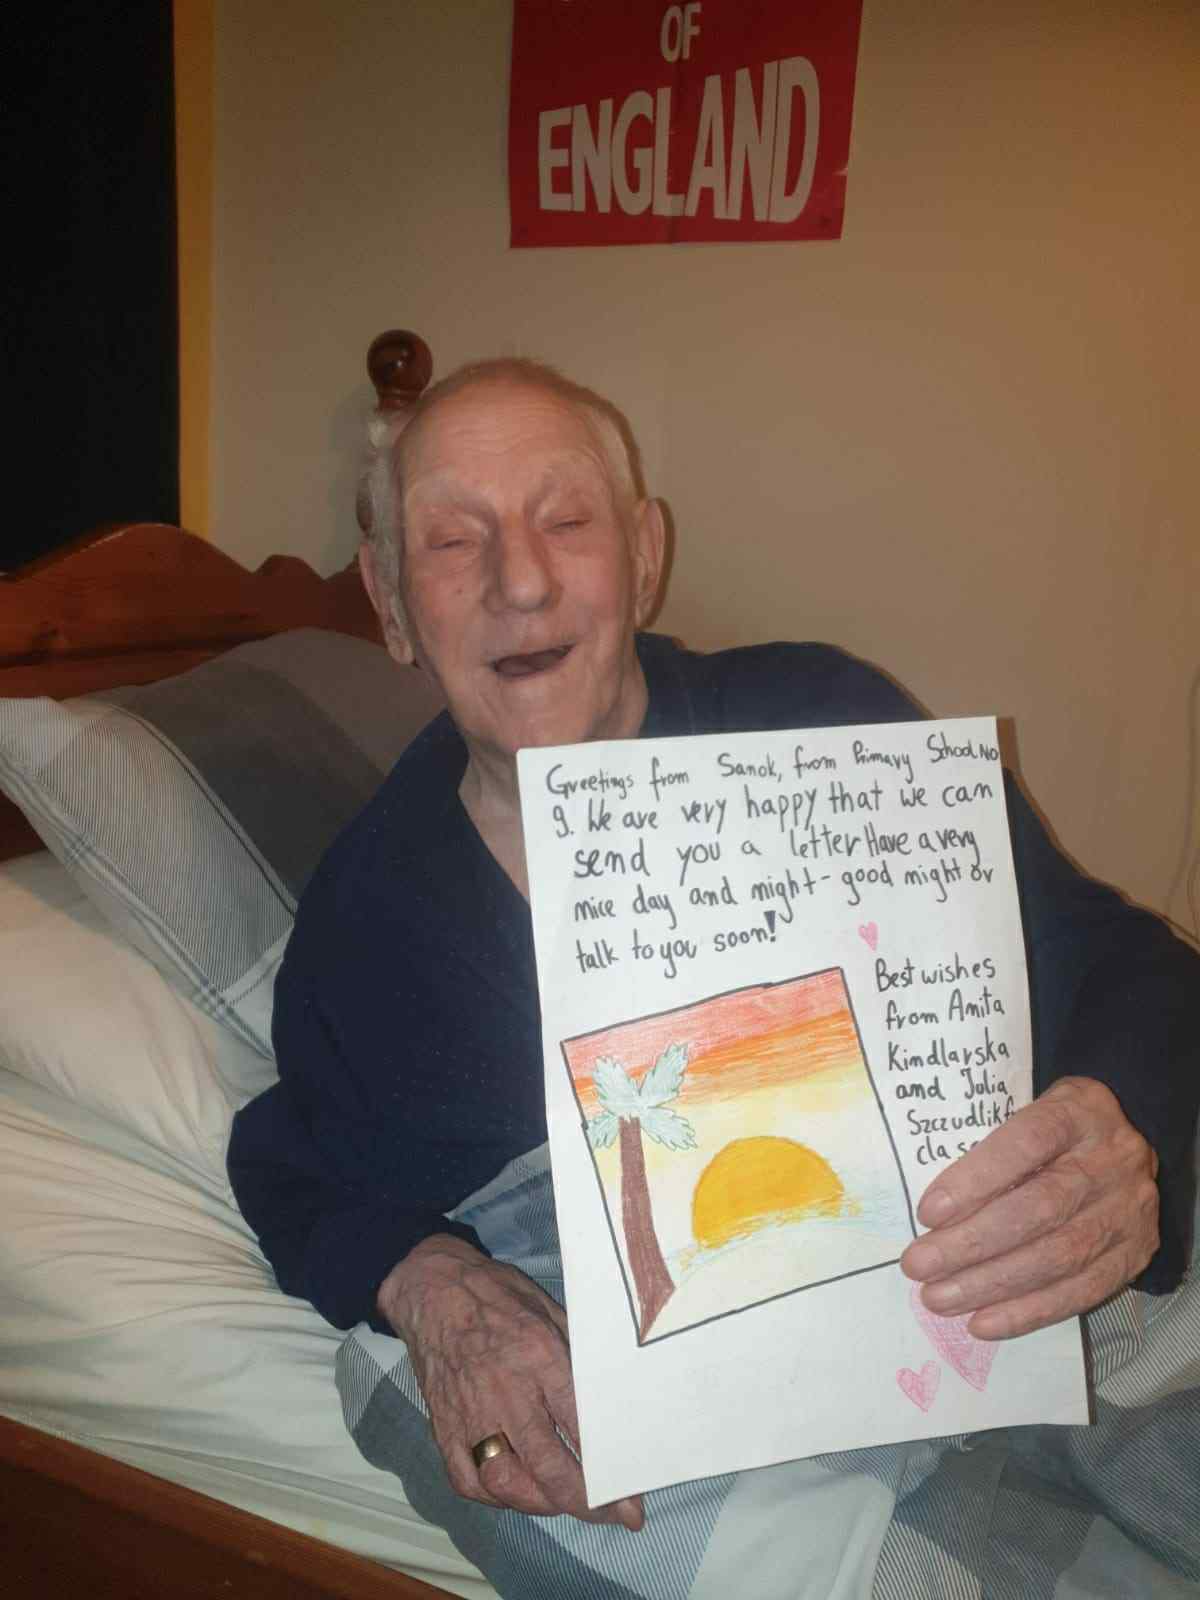 OF
ENGLAND
Greetings from Sanok, from Primary School No
9. We are very happy that we can
send you a letter Have a very
nice day and night - good night or
talk to you soon!
Best wishes
from Anita
Kindlarska
and Julia
Szczudlik